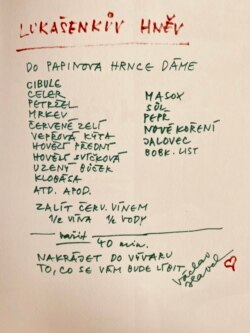 LUKAŠENKŮV HNĚV
DO PAPINOVA HRNCE DÁME
CIBULE
CELER
PETRŽEL
MRKEV
ČERVENÉ ZELÍ
VEPŘOVÁ KÝTA
HOVĚZÍ PŘEDNÍ
HOVĚZÍ SVÍČKOVÁ
UZENÝ BŮČEK
KLOBÁSA
ATD. APOD.
MASOX
SŮL
PEPŘ
NOVÉ KOŘENÍ
JALOVEC
BOBK. LIST
ZALÍT ČERV. VÍNEM
1/2 VÍNA 1/2 VODY
vařit 40 min.
NAKRÁJET DO VÝVARU
TO, CO SE VÁM BUDE LÍBIT
Václav Havel